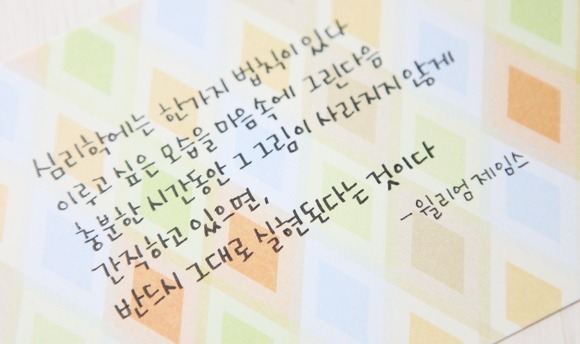 심리학에는 한가지 법칙이 있다
이루고 싶은 모습을 마음속에 그린다음
충분한 시간동안 그 그림이 사라지지 않게
간직하고 있으면,
반드시 그대로 실현된다는 것이다
-윌리엄 제임스